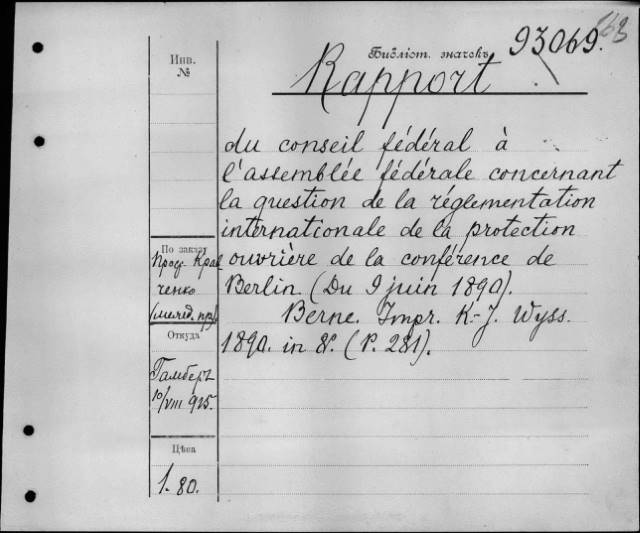 163
Библіот. значекъ 93069.
Rapport
du conseil fédéral à
l'assemblée fédérale concernant
la question de la réglementation
internationale de la protection
ouvrière de la conférence de
Berlin. (Du 9 juin 1890).
Berne. Impr. K.-J. Wyss.
1890. in 8°. (P. 281).
Инв.
№
По заказу
Проф. Крав
ченко
Откуда
Гамберъ
10/VIII 925.
Цѣна
1.80.